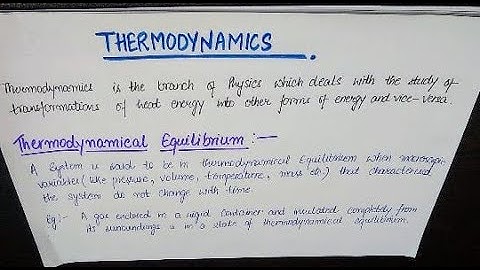 THERMODYNAMICS.
Thermodynamics is the branch of Physics which deals with the study of
transformations of heat energy into other forms of energy and vice-versa.
Thermodynamical Equilibrium :-
A system is said to be in thermodynamical Equilibrium when macroscopic
variables (like pressure, volume, temperature, mass etc.) that characterised
the system do not change with time.
Eg:- A gas enclosed in a rigid container and insulated completely from
its surroundings is in a state of thermodynamical equilibrium.